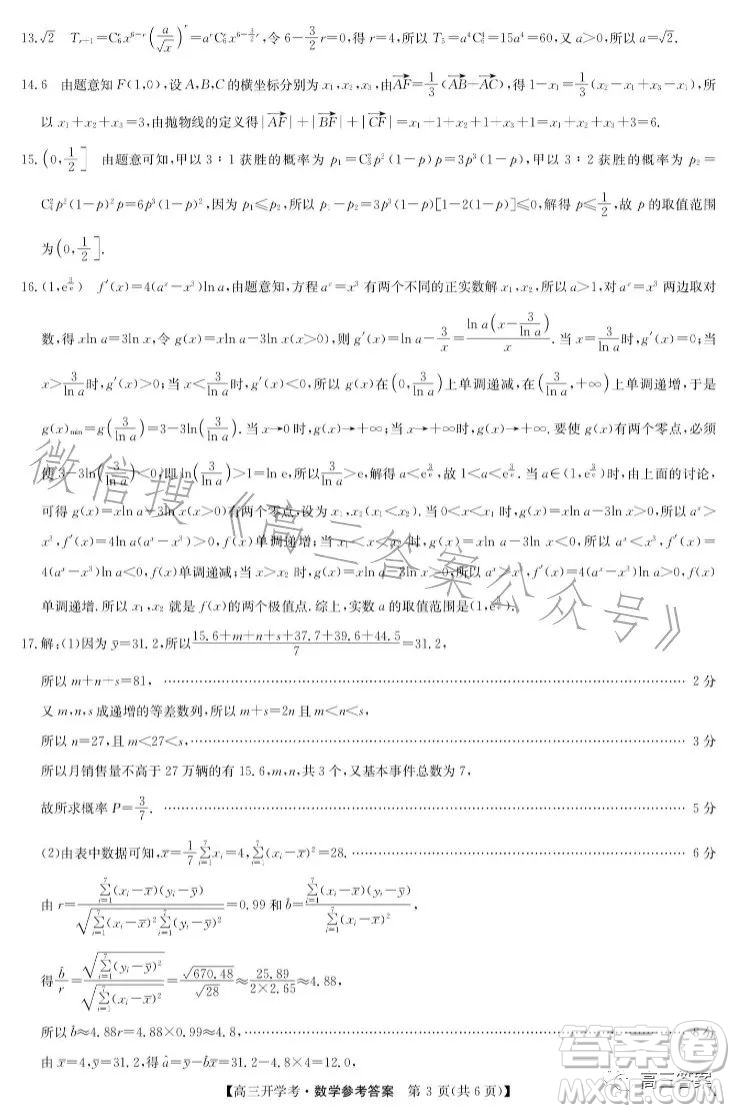 13.√2　T_{r+1}=C_6^r x^{6-r}(a/√x)^r=a^r C_6^r x^{6-\frac{3}{2}r},令6-\frac{3}{2}r=0,得r=4,所以T_5=a^4C_6^4=15a^4=60,又a>0,所以a=√2.
14.6　由题意知F(1,0),设A,B,C的横坐标分别为x_1,x_2,x_3,由\overrightarrow{AF}=\frac{1}{3}(\overrightarrow{AB}-\overrightarrow{AC}),得1-x_1=\frac{1}{3}(x_2-x_1+x_3-x_1),所
以x_1+x_2+x_3=3,由抛物线的定义得|\overrightarrow{AF}|+|\overrightarrow{BF}|+|\overrightarrow{CF}|=x_1+1+x_2+1+x_3+1=3+3=6.
15.(0,\frac{1}{2}]　由题意可知,甲以3∶1获胜的概率为p_1=C_3^2p^2(1-p)p=3p^3(1-p),甲以3∶2获胜的概率p_2=
C_4^2p^2(1-p)^2p=6p^3(1-p)^2,因为p_1≤p_2,所以p_1-p_2=3p^3(1-p)[1-2(1-p)]≤0,解得p≤\frac{1}{2},故p的取值范围
为(0,\frac{1}{2}].
16.(1,e^{\frac{3}{e}})　f′(x)=4(a^x-x^3)ln a,由题意知,方程a^x=x^3有两个不同的正实数解x_1,x_2,所以a>1,对a^x=x^3两边取对
数,得xln a=3ln x,令g(x)=xln a-3ln x(x>0),则g′(x)=ln a-\frac{3}{x}=\frac{ln a(x-\frac{3}{ln a})}{x}.当x=\frac{3}{ln a}时,g′(x)=0;当
x>\frac{3}{ln a}时,g′(x)>0;当x<\frac{3}{ln a}时,g′(x)<0,所以g(x)在(0,\frac{3}{ln a})上单调递减,在(\frac{3}{ln a},+∞)上单调递增,于是
g(x)_{min}=g(\frac{3}{ln a})=3-3ln(\frac{3}{ln a}).当x→0时,g(x)→+∞;当x→+∞时,g(x)→+∞.要使g(x)有两个零点,必须
使3-3ln(\frac{3}{ln a})<0,即ln(\frac{3}{ln a})>1=ln e,所以\frac{3}{ln a}>e,解得a<e^{\frac{3}{e}},故1<a<e^{\frac{3}{e}}.当a∈(1,e^{\frac{3}{e}})时,由上面的讨论,
可得g(x)=xln a-3ln x(x>0)有两个零点,设为x_1,x_2(x_1<x_2).当0<x<x_1时,g(x)=xln a-3ln x>0,所以a^x>
x^3,f′(x)=4ln a(a^x-x^3)>0,f(x)单调递增;当x_1<x<x_2时,g(x)=xln a-3ln x<0,所以a^x<x^3,f′(x)=
4(a^x-x^3)ln a<0,f(x)单调递减;当x>x_2时,g(x)=xln a-3ln x>0,所以a^x>x^3,f′(x)=4(a^x-x^3)ln a>0,f(x)
单调递增.所以x_1,x_2就是f(x)的两个极值点.综上,实数a的取值范围是(1,e^{\frac{3}{e}}).
17.解:(1)因为\bar{y}=31.2,所以\frac{15.6+m+n+s+37.7+39.6+44.5}{7}=31.2,
所以m+n+s=81,……2分
又m,n,s成递增的等差数列,所以m+s=2n且m<n<s,
所以n=27,且m<27<s,……3分
所以月销售量不高于27万辆的有15.6,m,n,共3个,又基本事件总数为7,
故所求概率P=\frac{3}{7}.……5分
(2)由表中数据可知,\bar{x}=\frac{1}{7}\sum_{i=1}^{7}x_i=4,\sum_{i=1}^{7}(x_i-\bar{x})^2=28.……6分
由r=\frac{\sum_{i=1}^{7}(x_i-\bar{x})(y_i-\bar{y})}{\sqrt{\sum_{i=1}^{7}(x_i-\bar{x})^2\sum_{i=1}^{7}(y_i-\bar{y})^2}}=0.99和\hat{b}=\frac{\sum_{i=1}^{7}(x_i-\bar{x})(y_i-\bar{y})}{\sum_{i=1}^{7}(x_i-\bar{x})^2},
得\frac{\hat{b}}{r}=\frac{\sqrt{\sum_{i=1}^{7}(y_i-\bar{y})^2}}{\sqrt{\sum_{i=1}^{7}(x_i-\bar{x})^2}}=\frac{\sqrt{670.48}}{\sqrt{28}}≈\frac{25.89}{2×2.65}≈4.88,
所以\hat{b}≈4.88r=4.88×0.99≈4.8,……8分
由\bar{x}=4,\bar{y}=31.2,得\hat{a}=31.2-4.8×4=12.0,
【高三开学考·数学参考答案　第3页(共6页)】
微信搜《高三答案公众号》
答案圈
高三答案